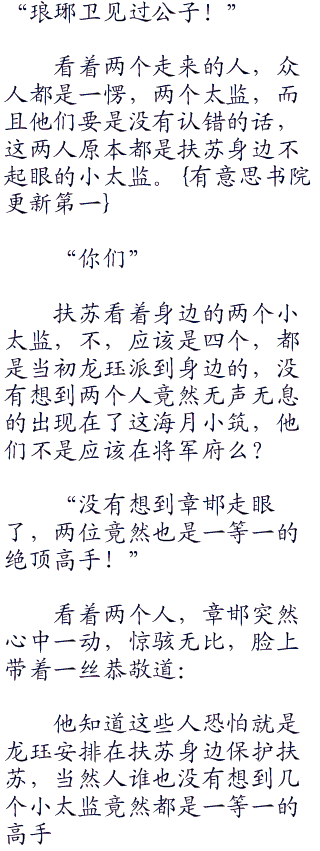 “琅琊卫见过公子！”
看着两个走来的人，众
人都是一愣，两个太监，而
且他们要是没有认错的话，
这两人原本都是扶苏身边不
起眼的小太监。{有意思书院
更新第一}
“你们”
扶苏看着身边的两个小
太监，不，应该是四个，都
是当初龙珏派到身边的，没
有想到两个人竟然无声无息
的出现在了这海月小筑，他
们不是应该在将军府么？
“没有想到章邯走眼
了，两位竟然也是一等一的
绝顶高手！”
看着两个人，章邯突然
心中一动，惊骇无比，脸上
带着一丝恭敬道：
他知道这些人恐怕就是
龙珏安排在扶苏身边保护扶
苏，当然人谁也没有想到几
个小太监竟然都是一等一的
高手